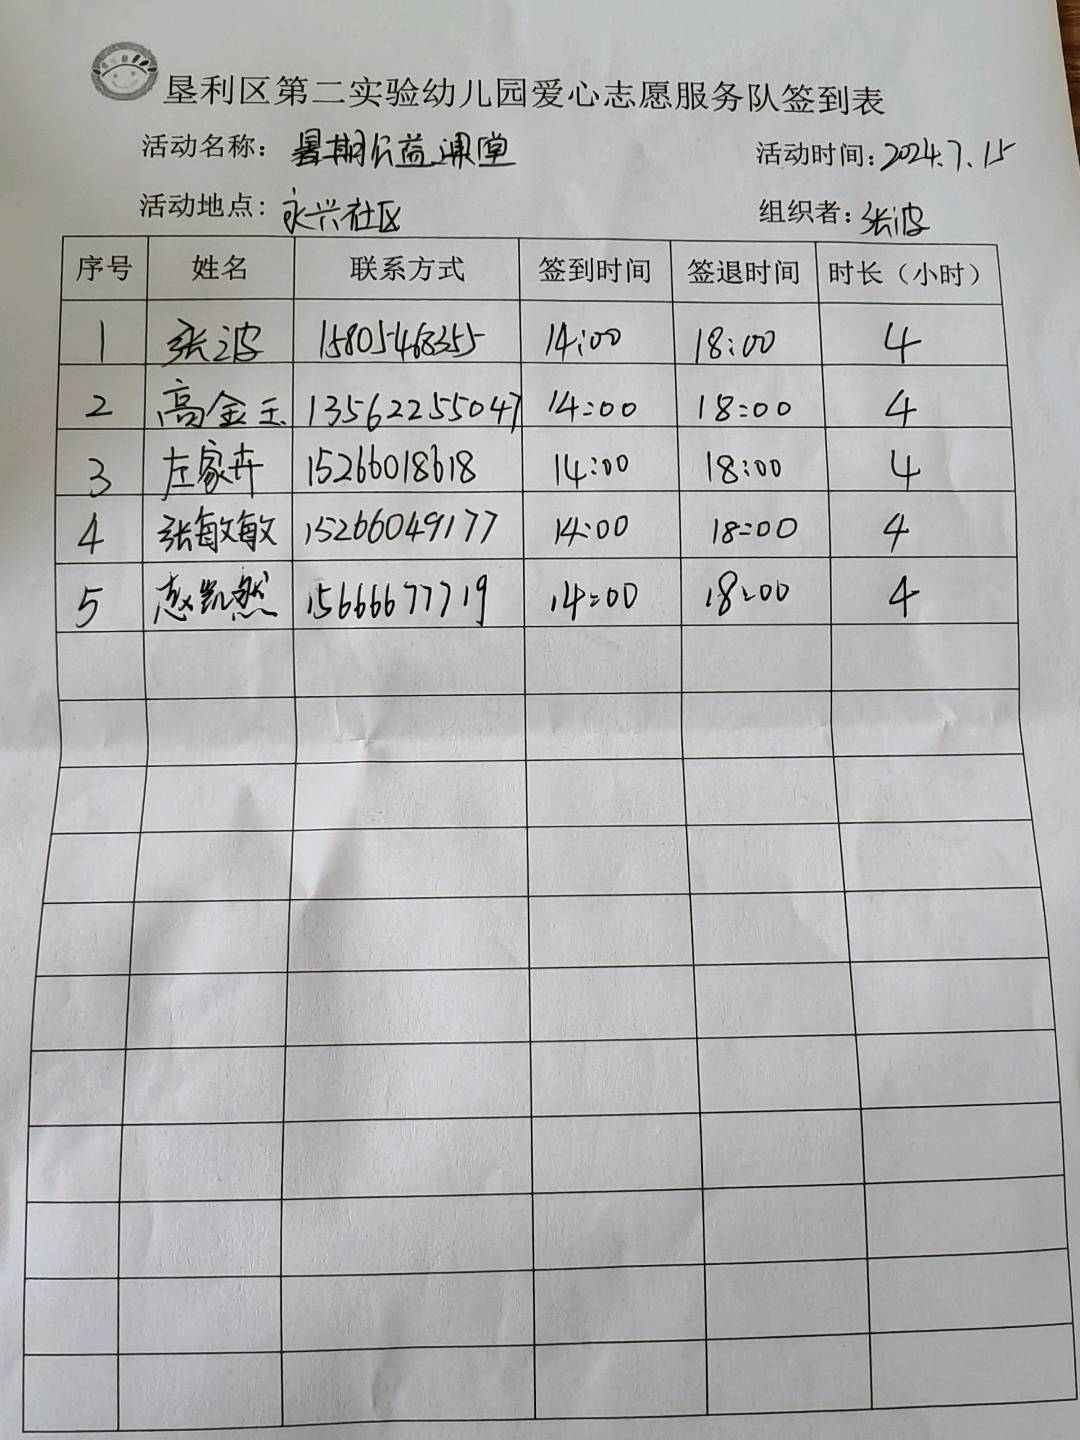 垦利区第二实验幼儿园爱心志愿服务队签到表
活动名称：暑期公益课堂 活动时间：2024.7.15
活动地点：永兴社区 组织者：张波
序号 姓名 联系方式 签到时间 签退时间 时长（小时）
1 张波 15805468355 14:00 18:00 4
2 高金玉 13562255047 14:00 18:00 4
3 左家卉 15266018618 14:00 18:00 4
4 张敏敏 15266049177 14:00 18:00 4
5 赵凯然 15666677719 14:00 18:00 4